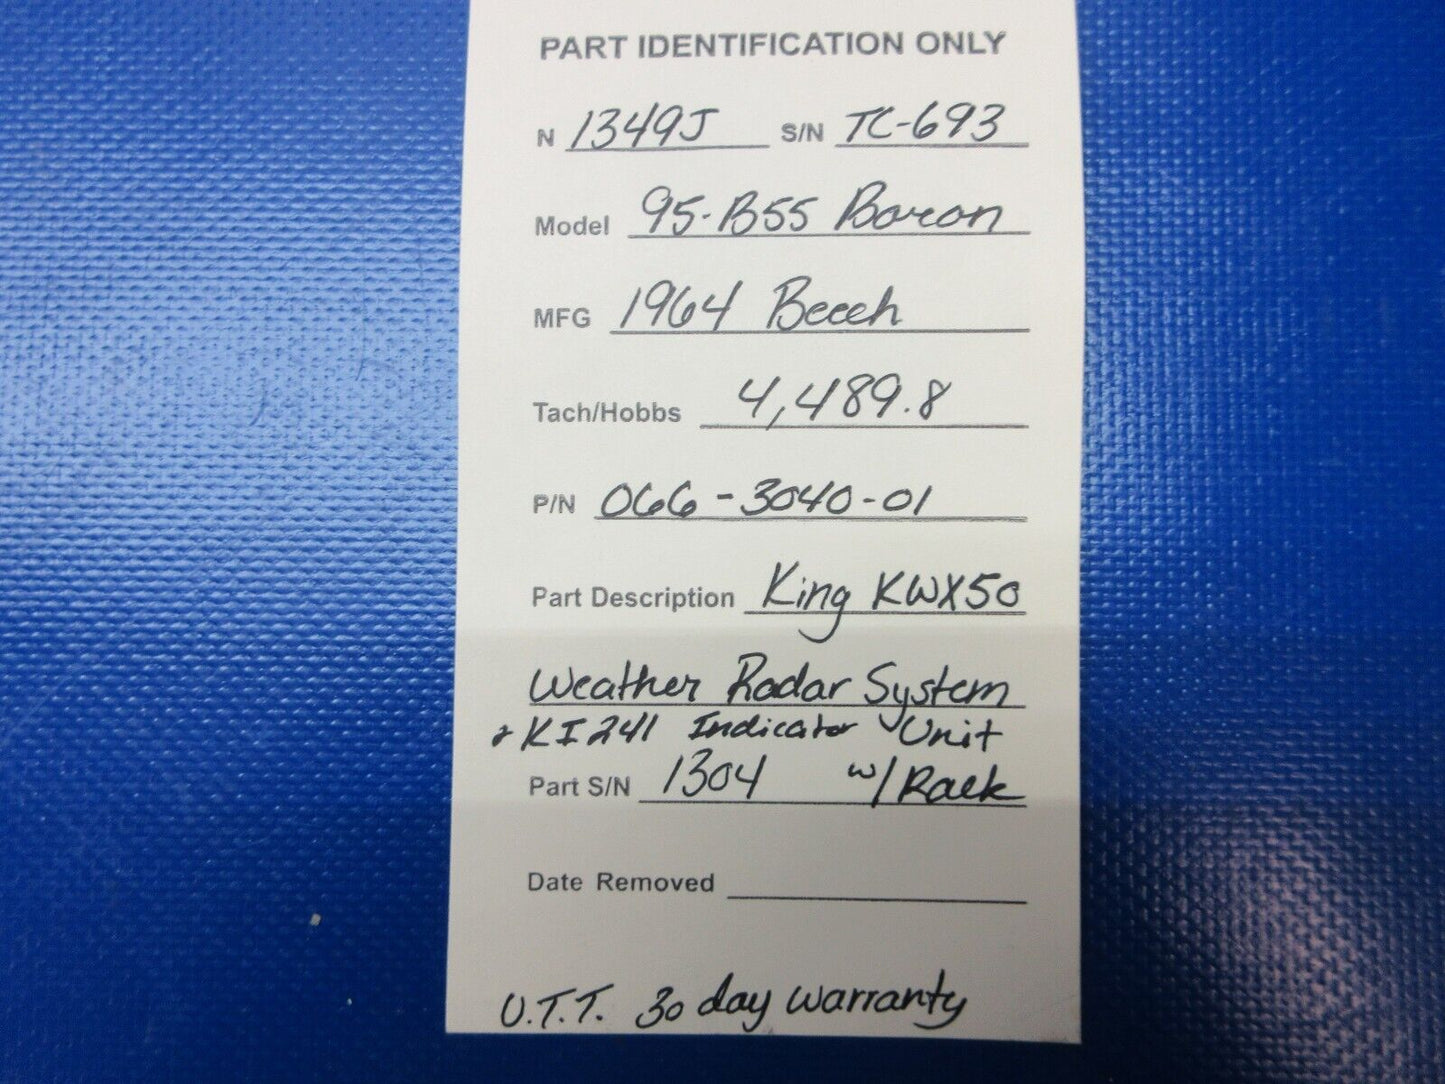 PART IDENTIFICATION ONLY
N 1349J S/N TC-693
Model 95-B55 Baron
MFG 1964 Beech
Tach/Hobbs 4,489.8
P/N 066-3040-01
Part Description King KWX50
Weather Radar System
& KI241 Indicator Unit
Part S/N 1304 w/Rack
Date Removed
U.T.T. 30 day warranty